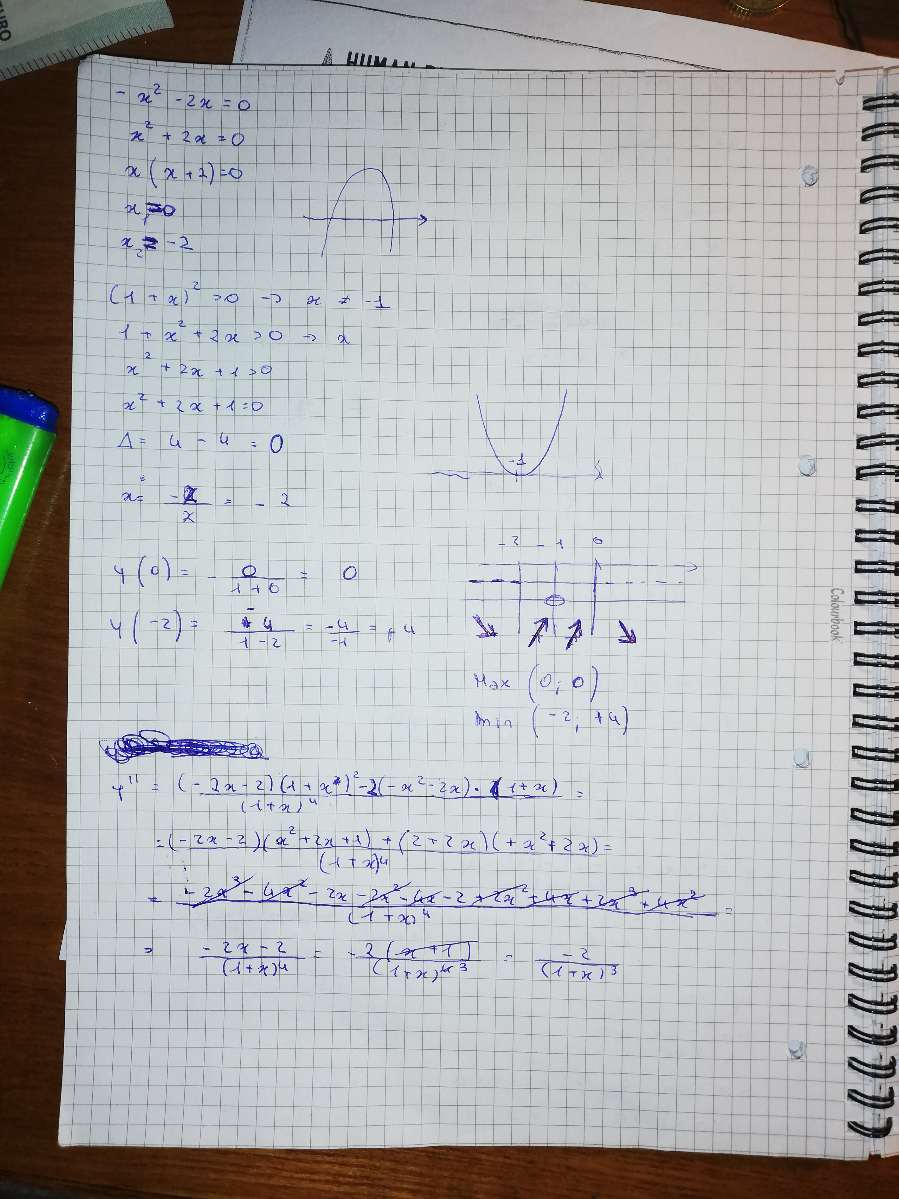 EURO
HUMAN
- x² - 2x = 0
x² + 2x = 0
x (x + 2) = 0
x₁ = 0
x₂ = -2
(1 + x)² > 0 → x ≠ -1
1 + x² + 2x > 0 → x
x² + 2x + 1 > 0
x² + 2x + 1 = 0
Δ = 4 - 4 = 0
-1
x = -2/2 = - 2
-2 -1 0
y (0) = - 0/(1+0) = 0
y (-2) = -4/(1-2) = -4/-1 = +4
Max (0; 0)
Min (-2, +4)
y'' = ((-2x-2)(1+x)² -2(-x²-2x)·(1+x))/(1+x)⁴ =
= ((-2x-2)(x²+2x+1) + (2+2x)(+x²+2x))/(1+x)⁴ =
= (-2x³ - 4x² - 2x - 2x² - 4x - 2 + 2x² + 4x + 2x³ + 4x²)/(1+x)⁴ =
= (-2x-2)/(1+x)⁴ = -2(x+1)/(1+x)⁴ ³ = -2/(1+x)³
Colourbook